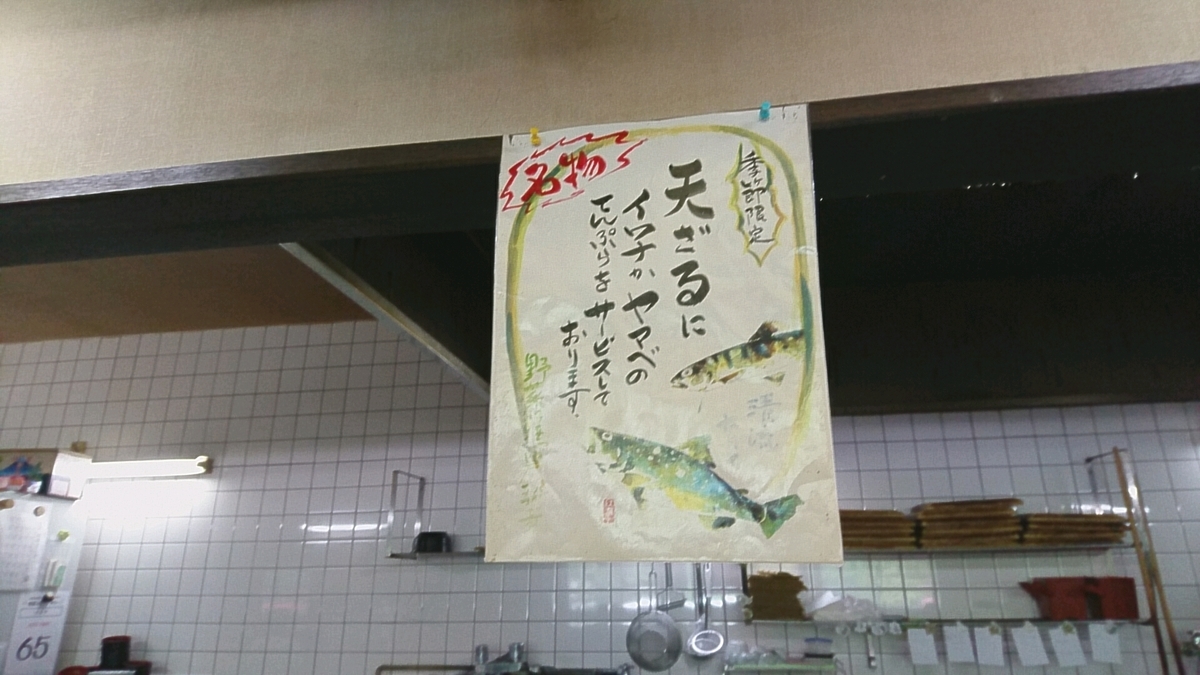 季節限定
天ざるに
イワナか ヤマベの
てんぷらを サービスして
おります。
名物
清流
65